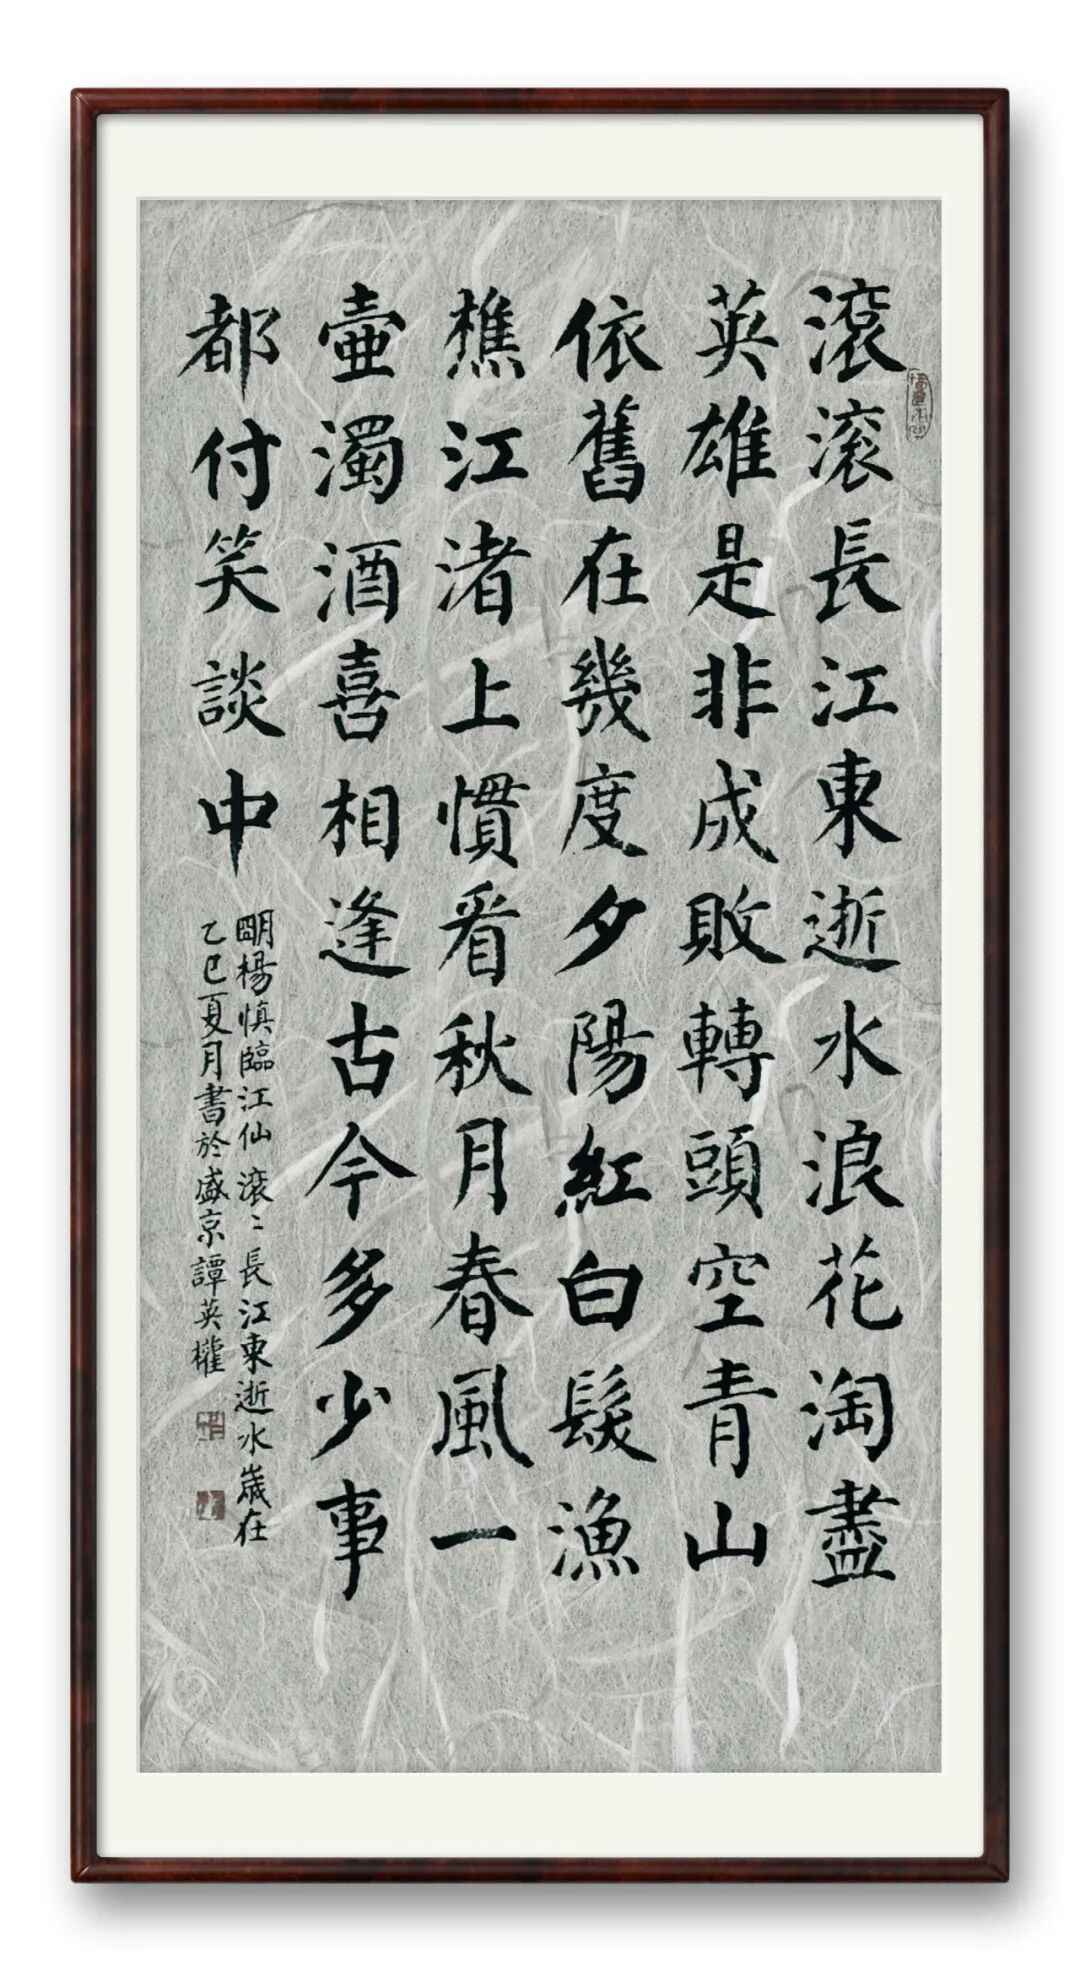 滾滾長江東逝水浪花淘盡
英雄是非成敗轉頭空青山
依舊在幾度夕陽紅白髮漁
樵江渚上慣看秋月春風一
壺濁酒喜相逢古今多少事
都付笑談中
明楊慎臨江仙滚〻長江東逝水歲在
乙巳夏月書於盛京譚英權